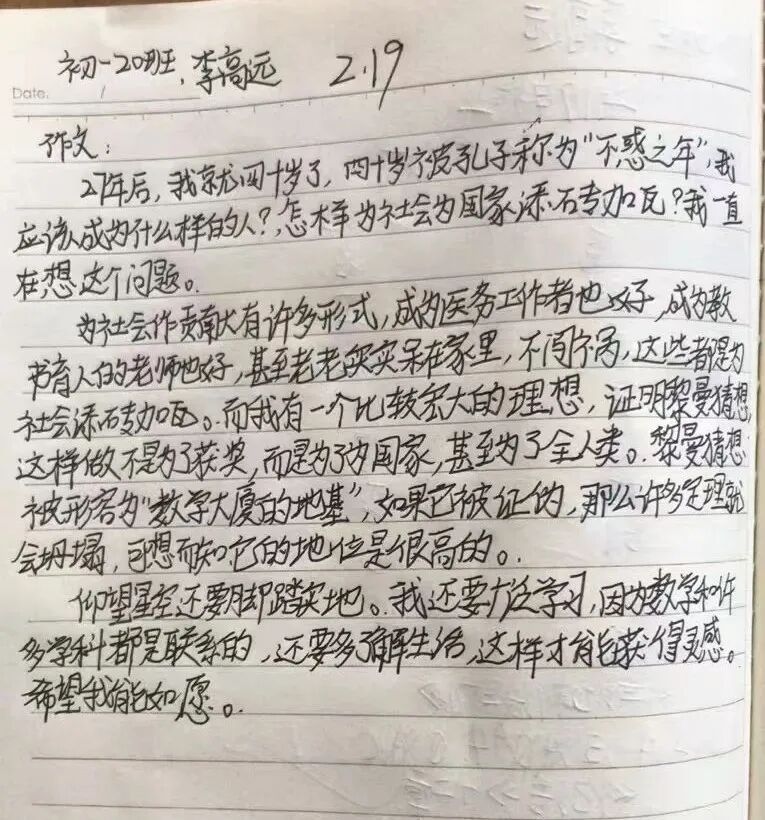 初一20班,李高远 2.19
Date. /
作文:
27年后,我就四十岁了,四十岁被孔子称为“不惑之年”,我
应该成为什么样的人?怎样为社会为国家添砖加瓦?我一直
在想这个问题。
为社会作贡献有许多形式,成为医务工作者也好,成为教
书育人的老师也好,甚至老老实实呆在家里,不闯祸,这些都是为
社会添砖加瓦。而我有一个比较宏大的理想,证明黎曼猜想,
这样做不是为了获奖,而是为了为国家,甚至为了全人类。黎曼猜想
被形容为“数学大厦的地基”,如果它被证伪,那么许多定理就
会坍塌,可想而知它的地位是很高的。
仰望星空还要脚踏实地。我还要广泛学习,因为数学和许
多学科都是联系的,还要多了解生活,这样才能获得灵感。
希望我能如愿。